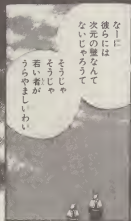 なーに
彼らには
次元の壁なんて
ないじゃろうて
そうじゃ
そうじゃ
若い者が
うらやましいわい